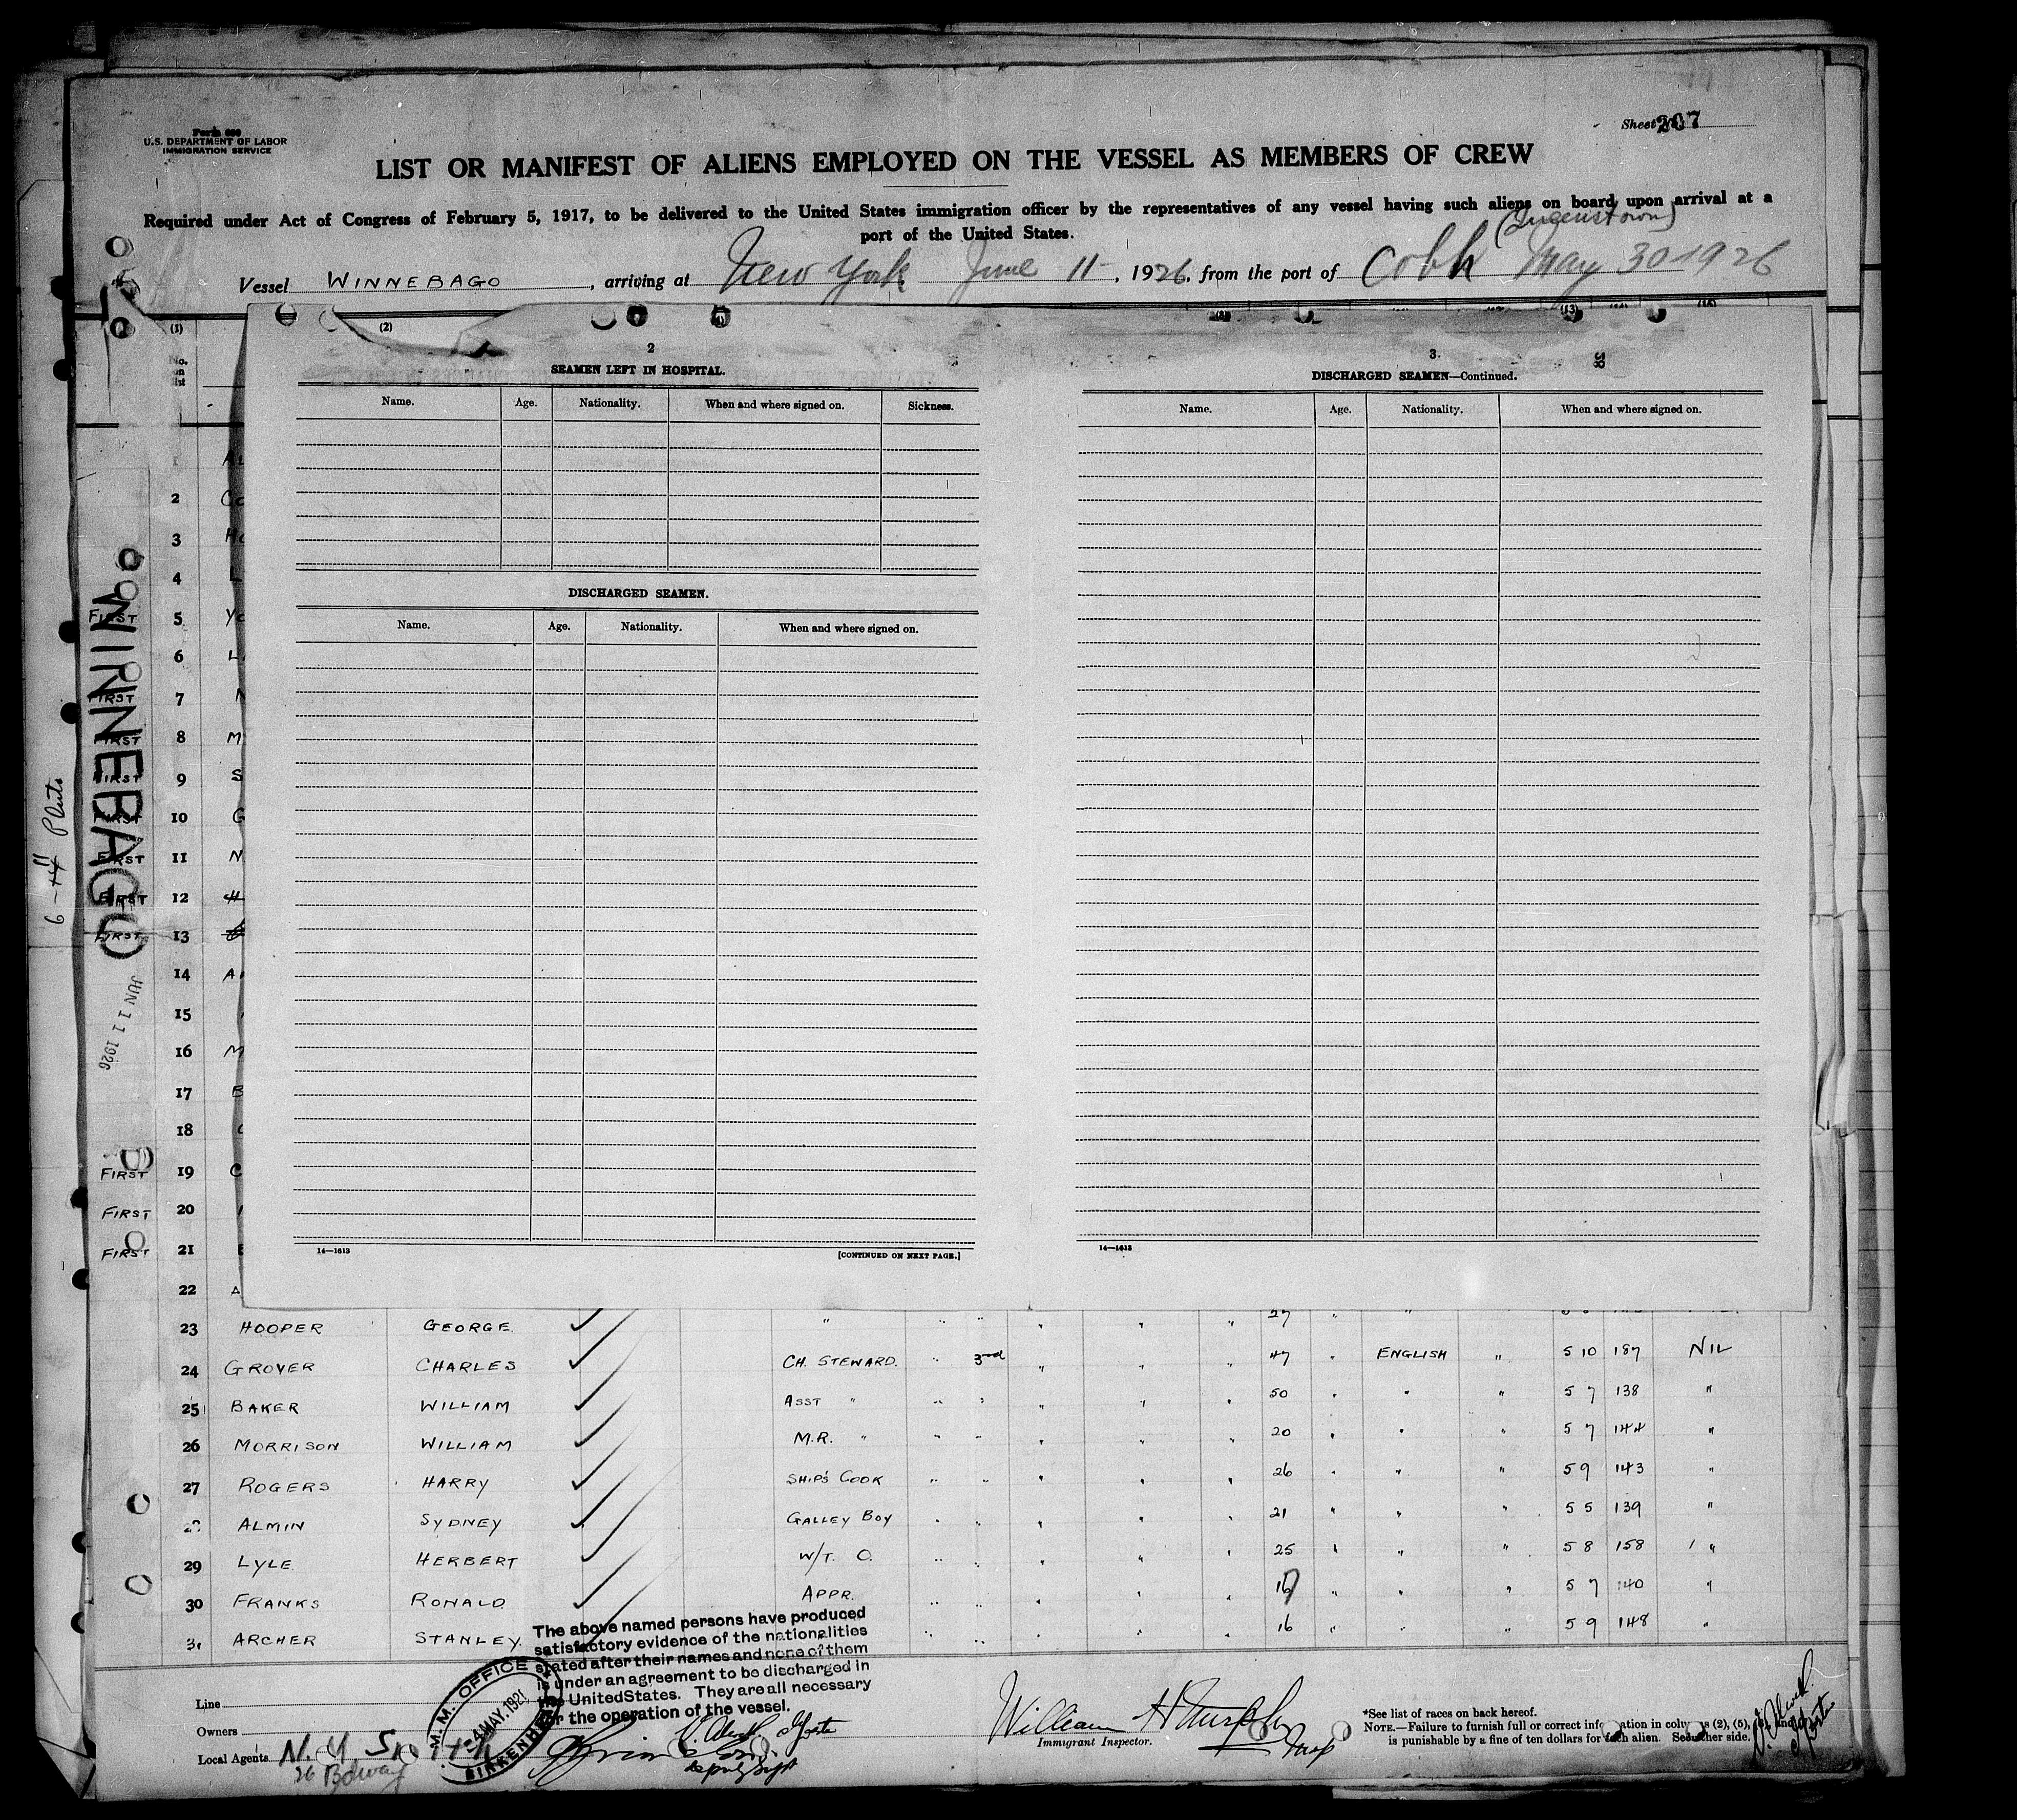 Form 680
U.S. DEPARTMENT OF LABOR
IMMIGRATION SERVICE
Sheet 207
LIST OR MANIFEST OF ALIENS EMPLOYED ON THE VESSEL AS MEMBERS OF CREW
Required under Act of Congress of February 5, 1917, to be delivered to the United States immigration officer by the representatives of any vessel having such aliens on board upon arrival at a
port of the United States.
(Queenstown)
Vessel WINNEBAGO, arriving at New York June 11, 1926, from the port of Cobh May 30 1926
(1) (2) (13) (15)
No. on list
2
SEAMEN LEFT IN HOSPITAL.
Name. Age. Nationality. When and where signed on. Sickness.
DISCHARGED SEAMEN.
Name. Age. Nationality. When and where signed on.
14—1613 [CONTINUED ON NEXT PAGE.]
3.
DISCHARGED SEAMEN—Continued.
Name. Age. Nationality. When and where signed on.
14—1613
WINNEBAGO
JUN 11 1926
1 AL
2 Co
3 Ho
4 L
FIRST 5 Yo
6 L
FIRST 7 N
FIRST 8 M
FIRST 9 S
FIRST 10 G
FIRST 11 N
FIRST 12 H
FIRST 13
14 A
15
16 M
17 B
18
FIRST 19 C
FIRST 20
FIRST 21
22 A
27 "
23 HOOPER GEORGE " " " " " "
24 GROVER CHARLES CH. STEWARD. " 3rd " " " 47 " ENGLISH " 5 10 187 NIL
25 BAKER WILLIAM ASST " " " " " " 50 " " " 5 7 138 "
26 MORRISON WILLIAM M.R. " " " " " " 20 " " " 5 7 144 "
27 ROGERS HARRY SHIP'S COOK " " " " " 26 " " " 5 9 143 "
28 ALMIN SYDNEY GALLEY BOY " " " " " 21 " " " 5 5 139 "
29 LYLE HERBERT W/T. O. " " " " " 25 " " " 5 8 158 "
30 FRANKS RONALD APPR. " " " " " 17 " " " 5 7 140 "
31 ARCHER STANLEY. " " " " " 16 " " " 5 9 148 "
The above named persons have produced
satisfactory evidence of the nationalities
stated after their names and none of them
is under an agreement to be discharged in
the United States. They are all necessary
for the operation of the vessel.
M. M. OFFICE
-4 MAY. 192
BIRKENHEAD
Line
Owners
Local Agents N. Y.
26 Bdway
William H Murphy
Immigrant Inspector.
*See list of races on back hereof.
NOTE.—Failure to furnish full or correct information in columns (2), (5),
is punishable by a fine of ten dollars for each alien. See other side.